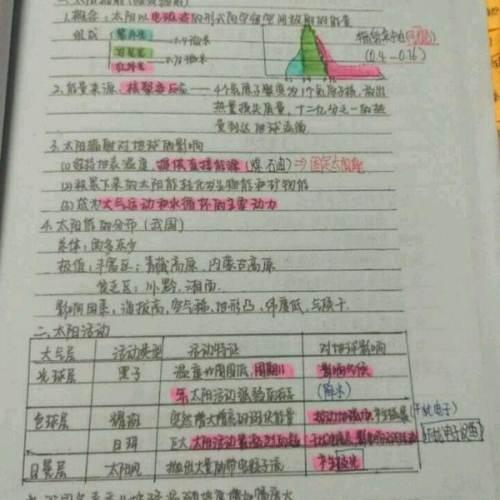 1.概念：太阳以电磁波的形式向宇宙空间放射的能量
组成 紫外光
可见光
红外光
能量集中在可见光
(0.4-0.76)
2.能量来源：核聚变反应——4个氢原子聚变为1个氦原子核，放出
热量损失质量，二十二亿分之一的热
量到达地球表面
3.太阳辐射对地球的影响
(1)维持地表温度，提供直接能源(煤 石油)⇒固定太阳能
(2)积累下来的太阳能转化为生物能和矿物能
(3)成为大气运动和水循环的主要动力
4.太阳能的分布(我国)
总体：西多东少
极值：丰富区：青藏高原、内蒙古高原
贫乏区：川黔、湘南
影响因素：海拔高，空气稀，地形凸，纬度低，
二、太阳活动
大气层 活动类型 活动特征 对地球影响
光球层 黑子 温度比周围低，周期11 影响气候
年 太阳活动强弱标志 (降水)
色球层 耀斑 突然增大增亮的斑块能量 (干扰电子)
日珥 巨大 干扰电子设备
日冕层 太阳风 抛出大量的带电粒子流 产生极光